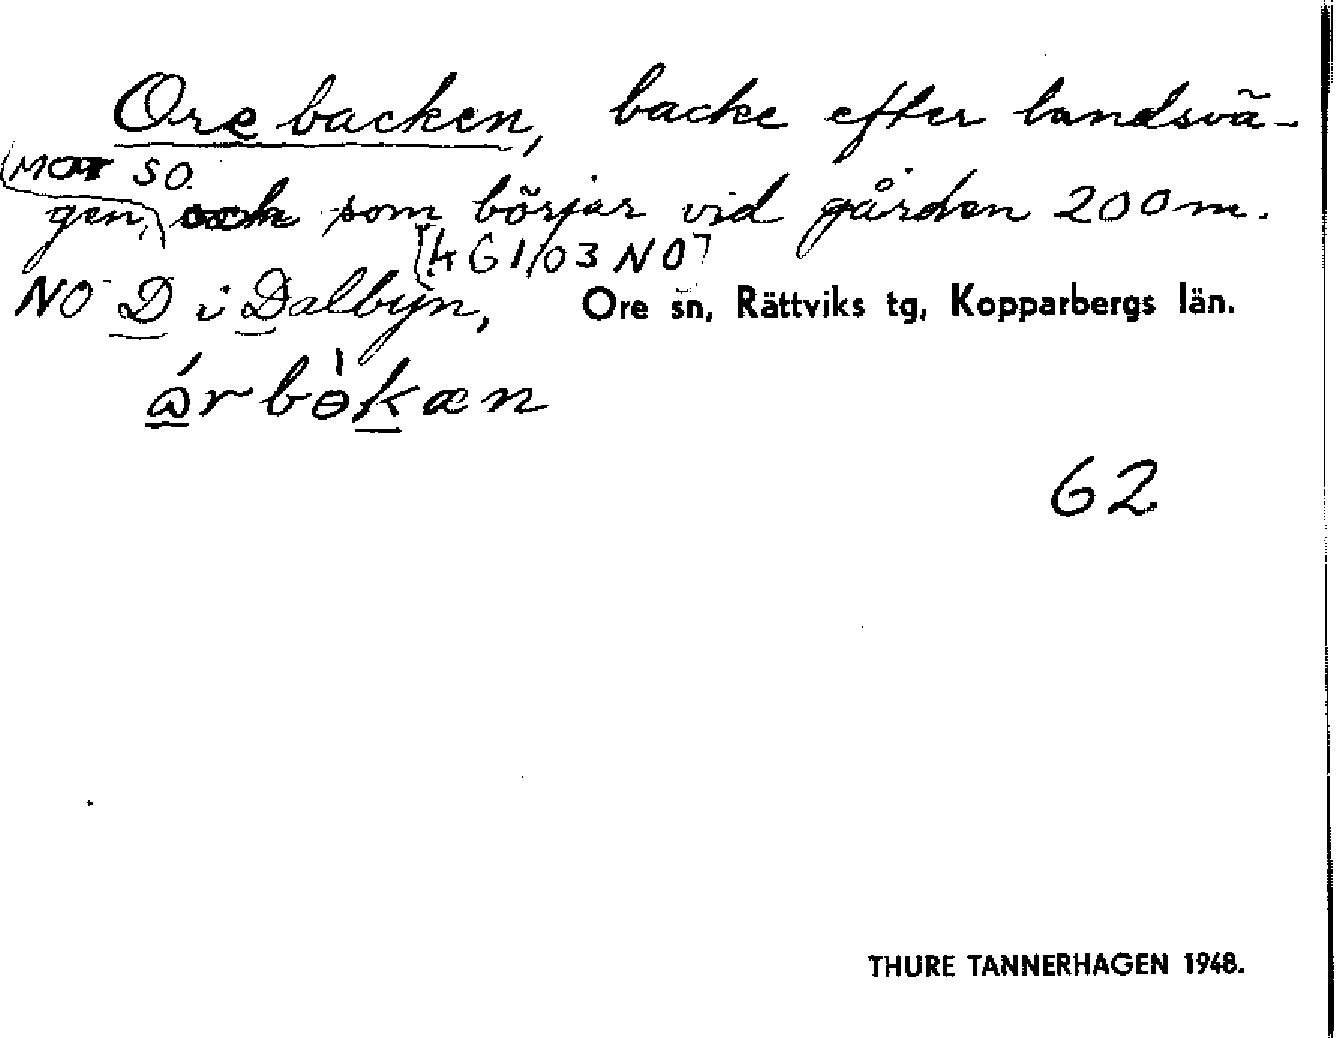 Orebacken, backe efter landsvä-
mot SO.
gen, och som börjar vid gården 200 m.
[k G1/03 NO]
NO D i Dalbyn, Ore sn, Rättviks tg, Kopparbergs län.
62
THURE TANNERHAGEN 1948.